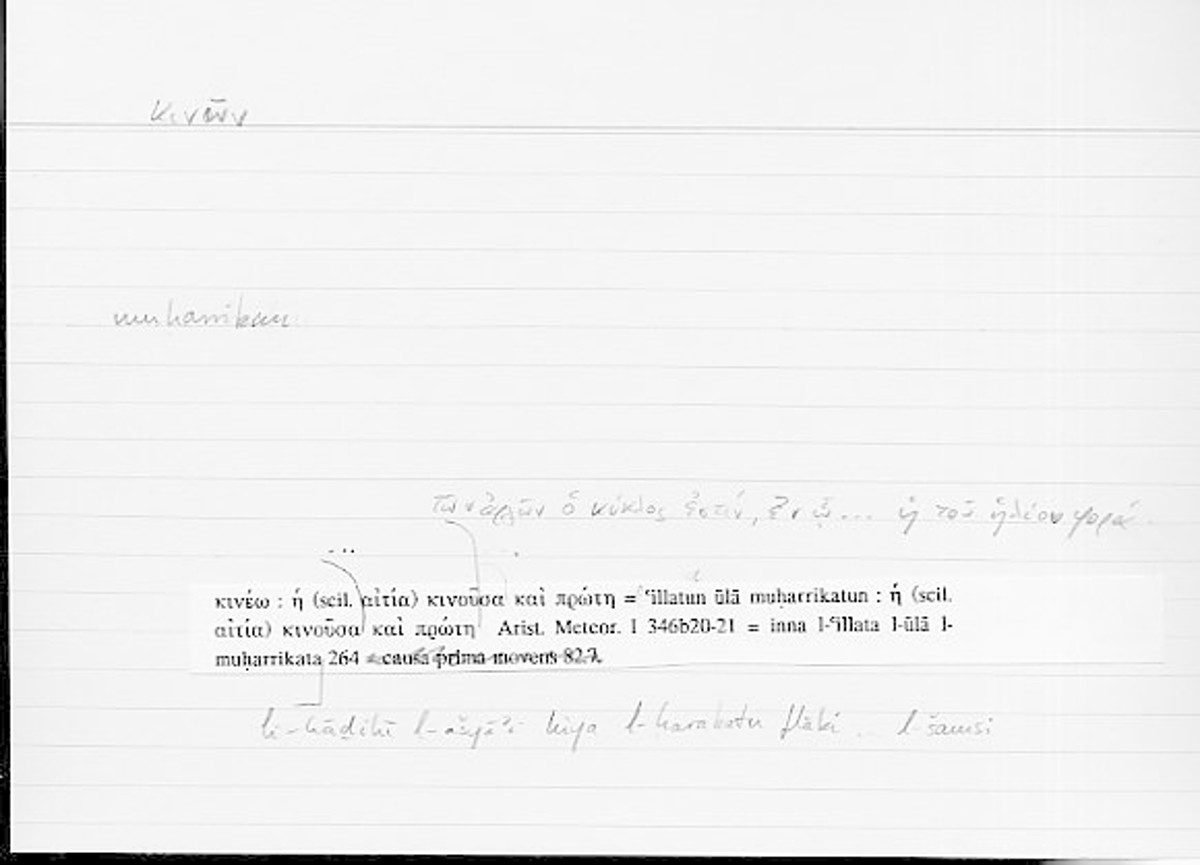 κινῶν
muharrikun
τῶν ἀρχῶν ὁ κύκλος ἐστίν, ἐν ᾧ... ἡ τοῦ ἡλίου φορά
...
κινέω : ἡ (scil. αἰτία) κινοῦσα καὶ πρώτη = ʿillatun ūlā muḥarrikatun : ἡ (scil.
αἰτία) κινοῦσα καὶ πρώτη Arist. Meteor. I 346b20-21 = inna l-ʿillata l-ūlā l-
muḥarrikata 264 = causa prima movens 82.7.
li-hāḏihī l-ašyāʾi hiya l-harakatu .. l-šamsi